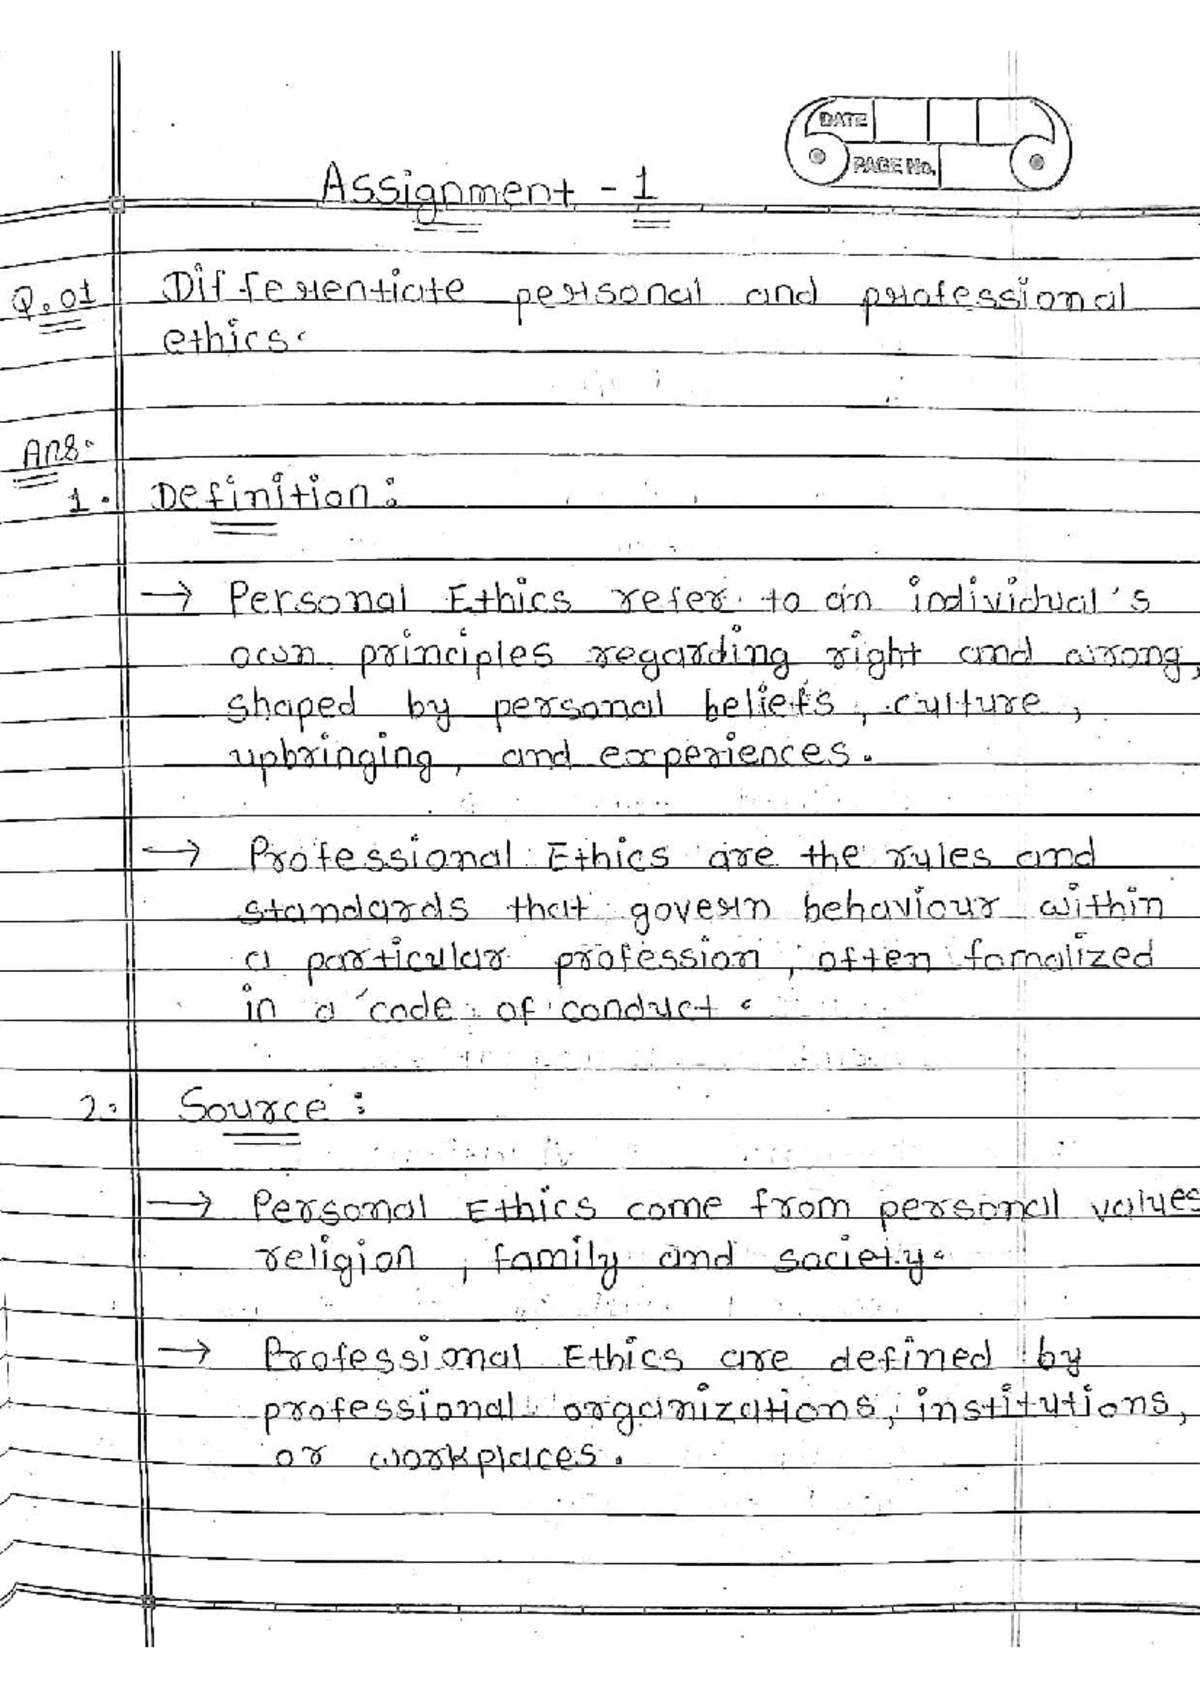 DATE
PAGE No.
Assignment - 1
Q.01 Differentiate personal and professional
ethics.
Ans.
1. Definition:
→ Personal Ethics refer to an individual's
own principles regarding right and wrong,
shaped by personal beliefs, culture,
upbringing, and experiences.
→ Professional Ethics are the rules and
standards that govern behaviour within
a particular profession, often fomalized
in a code of conduct.
2. Source:
→ Personal Ethics come from personal values
religion, family and society.
→ Professional Ethics are defined by
professional organizations, institutions,
or workplaces.